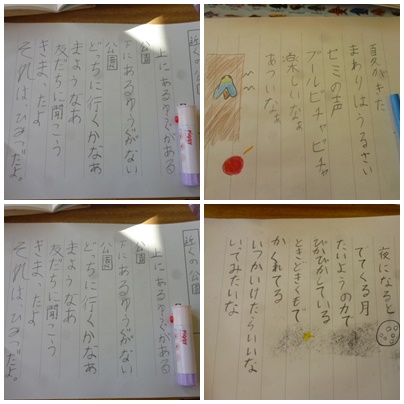 近くの公園
上にあるゆうぐがある
公園
下にあるゆうぐがない
公園
どっちに行くかなあ
まようなあ
友だちに聞こう
きまったよ
それは、ひみつだよ。
夏がきた
まわりはうるさい
セミの声
プールピチャピチャ
楽しいなあ
あついなあ
近くの公園
上にあるゆうぐがある
公園
下にあるゆうぐがない
公園
どっちに行くかなあ
まようなあ
友だちに聞こう
きまったよ
それは、ひみつだよ。
夜になると
でてくる月
たいようの力で
ぴかぴかしている
ときどきくもで
かくれてる
いつかいけたらいいな
いてみたいな